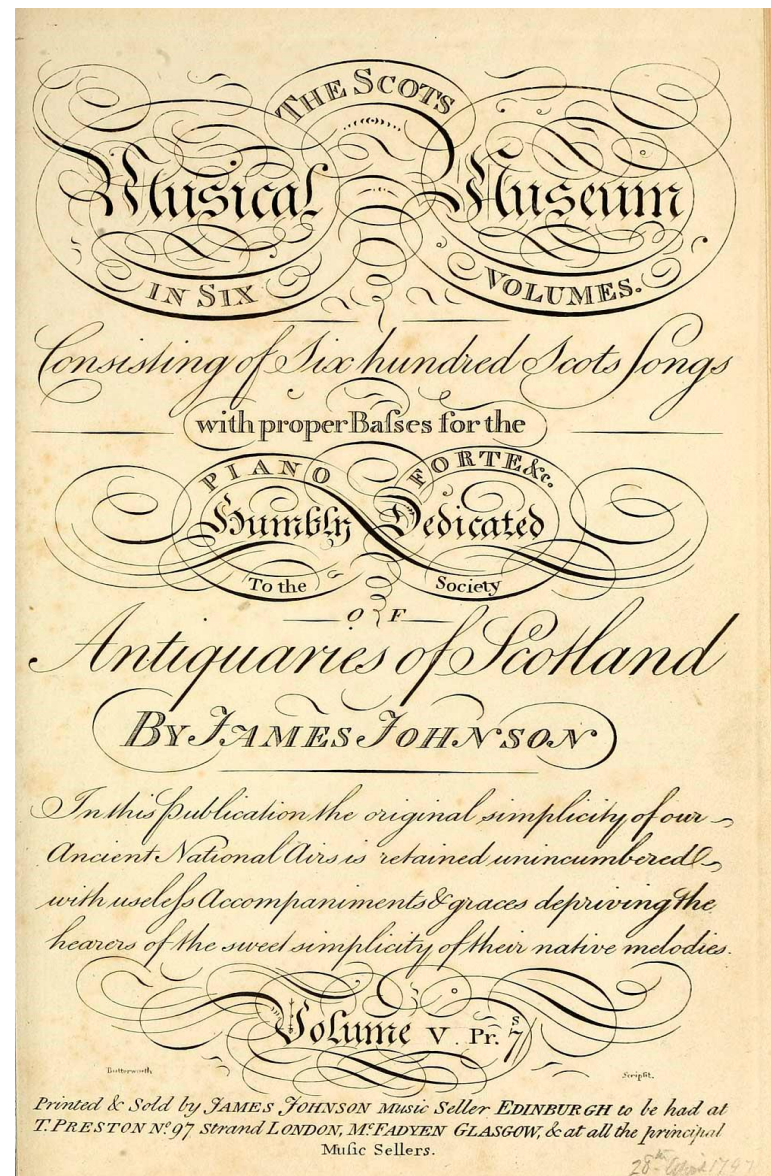 THE SCOTS
Musical Museum
IN SIX VOLUMES.
Consisting of Six hundred Scots Songs
with proper Baſses for the
PIANO FORTE &c.
Humbly Dedicated
To the Society
OF
Antiquaries of Scotland
BY JAMES JOHNSON
In this publication the original simplicity of our
Ancient National Airs is retained unincumbered
with useleſs Accompaniments & graces depriving the
hearers of the sweet simplicity of their native melodies.
Volume V. Pr. 7s
Butterworth Scripſit.
Printed & Sold by JAMES JOHNSON Music Seller EDINBURGH to be had at
T. PRESTON No. 97 Strand LONDON, McFADYEN GLASGOW, & at all the principal
Muſic Sellers.
28th 1797